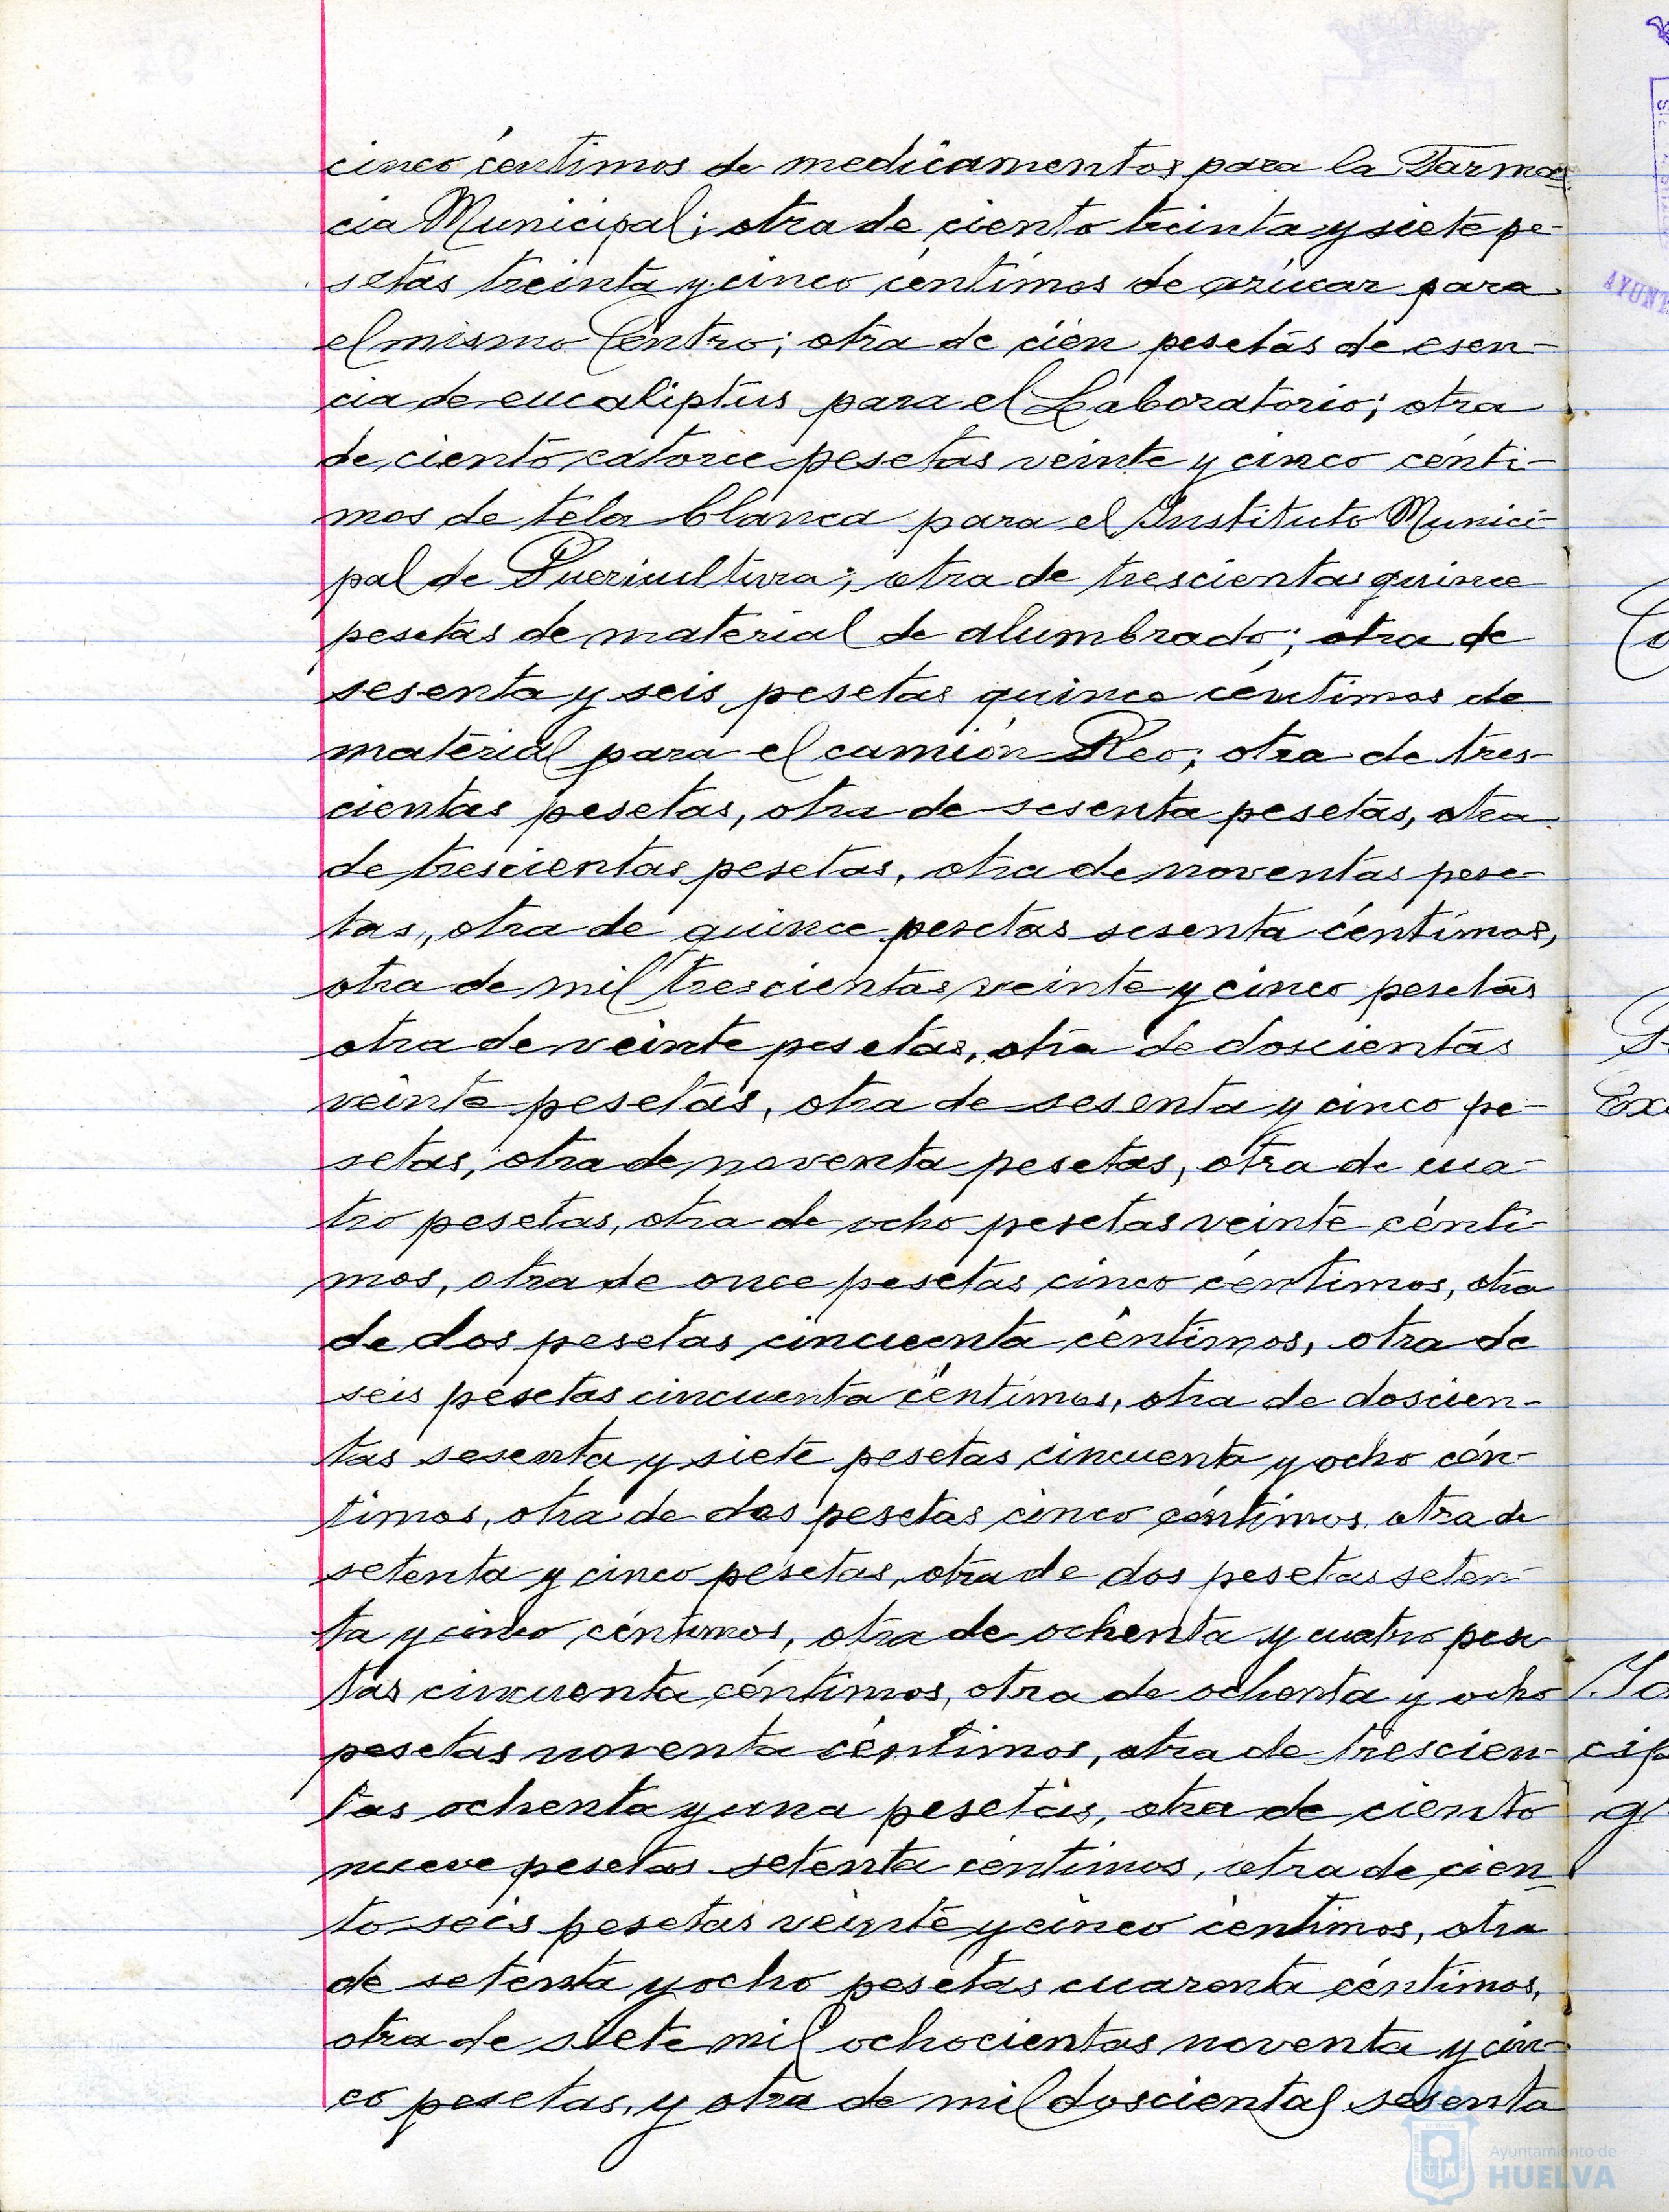 cinco céntimos de medicamentos para la Farma-
cia Municipal; otra de ciento treinta y siete pe-
setas treinta y cinco céntimos de azúcar para
el mismo Centro; otra de cien pesetas de esen-
cia de eucaliptus para el Laboratorio; otra
de ciento catorce pesetas veinte y cinco cénti-
mos de tela blanca para el Instituto Munici-
pal de Puericultura; otra de trescientas quince
pesetas de material de alumbrado; otra de
sesenta y seis pesetas quince céntimos de
material para el camión Reo; otra de tres-
cientas pesetas, otra de sesenta pesetas, otra
de trescientas pesetas, otra de noventas pese-
tas, otra de quince pesetas sesenta céntimos,
otra de mil trescientas veinte y cinco pesetas
otra de veinte pesetas, otra de doscientas
veinte pesetas, otra de sesenta y cinco pe-
setas, otra de noventa pesetas, otra de cua-
tro pesetas, otra de ocho pesetas veinte cénti-
mos, otra de once pesetas cinco céntimos, otra
de dos pesetas cincuenta céntimos, otra de
seis pesetas cincuenta céntimos, otra de doscien-
tas sesenta y siete pesetas cincuenta y ocho cén-
timos, otra de dos pesetas cinco céntimos, otra de
setenta y cinco pesetas, otra de dos pesetas seten-
ta y cinco céntimos, otra de ochenta y cuatro pese-
tas cincuenta céntimos, otra de ochenta y ocho
pesetas noventa céntimos, otra de trescien-
tas ochenta y una pesetas, otra de ciento
nueve pesetas setenta céntimos, otra de cien-
to seis pesetas veinte y cinco céntimos, otra
de setenta y ocho pesetas cuarenta céntimos,
otra de siete mil ochocientas noventa y cin-
co pesetas, y otra de mil doscientas sesenta
Ayuntamiento de
HUELVA